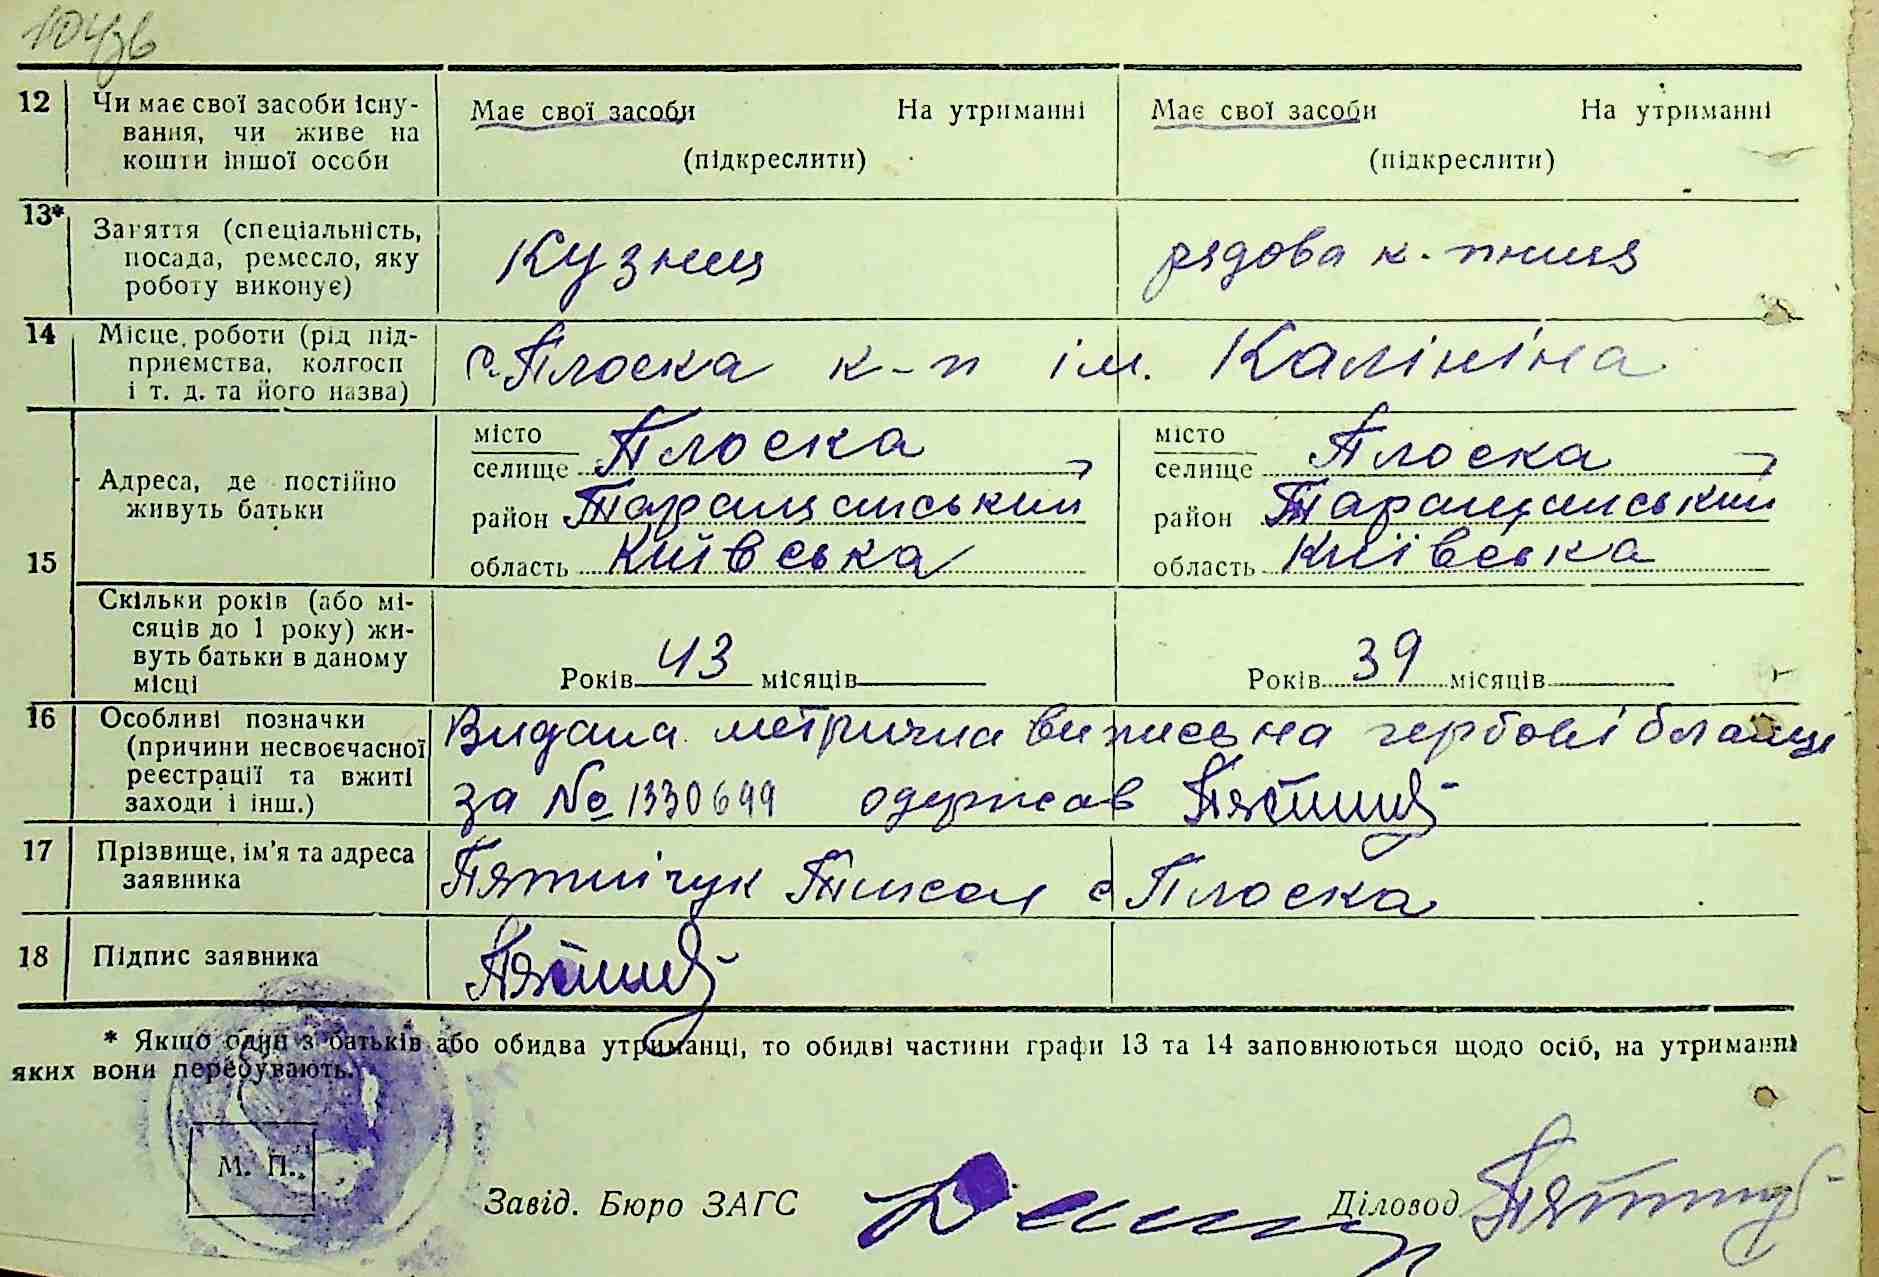 104зв
12 Чи має свої засоби існу-
вання, чи живе на
кошти іншої особи
Має свої засоби На утриманні
(підкреслити)
Має свої засоби На утриманні
(підкреслити)
13* Заняття (спеціальність,
посада, ремесло, яку
роботу виконує)
Кузнец
рядова к-пниця
14 Місце роботи (рід під-
приємства, колгосп
і т. д. та його назва)
с. Плоска к-п ім. Калініна
15 Адреса, де постійно
живуть батьки
місто
селище Плоска
район Таращанський
область Київська
місто
селище Плоска
район Таращанський
область Київська
Скільки років (або мі-
сяців до 1 року) жи-
вуть батьки в даному
місці
Років 43 місяців
Років 39 місяців
16 Особливі позначки
(причини несвоєчасної
реєстрації та вжиті
заходи і інш.)
Видана метрична випись на гербові бланці
за № 1330699 одержав
17 Прізвище, ім'я та адреса
заявника
Пятнічук с Плоска
18 Підпис заявника
* Якщо один з батьків або обидва утриманці, то обидві частини графи 13 та 14 заповнюються щодо осіб, на утриманні
яких вони перебувають.
М. П.
Завід. Бюро ЗАГС
Діловод